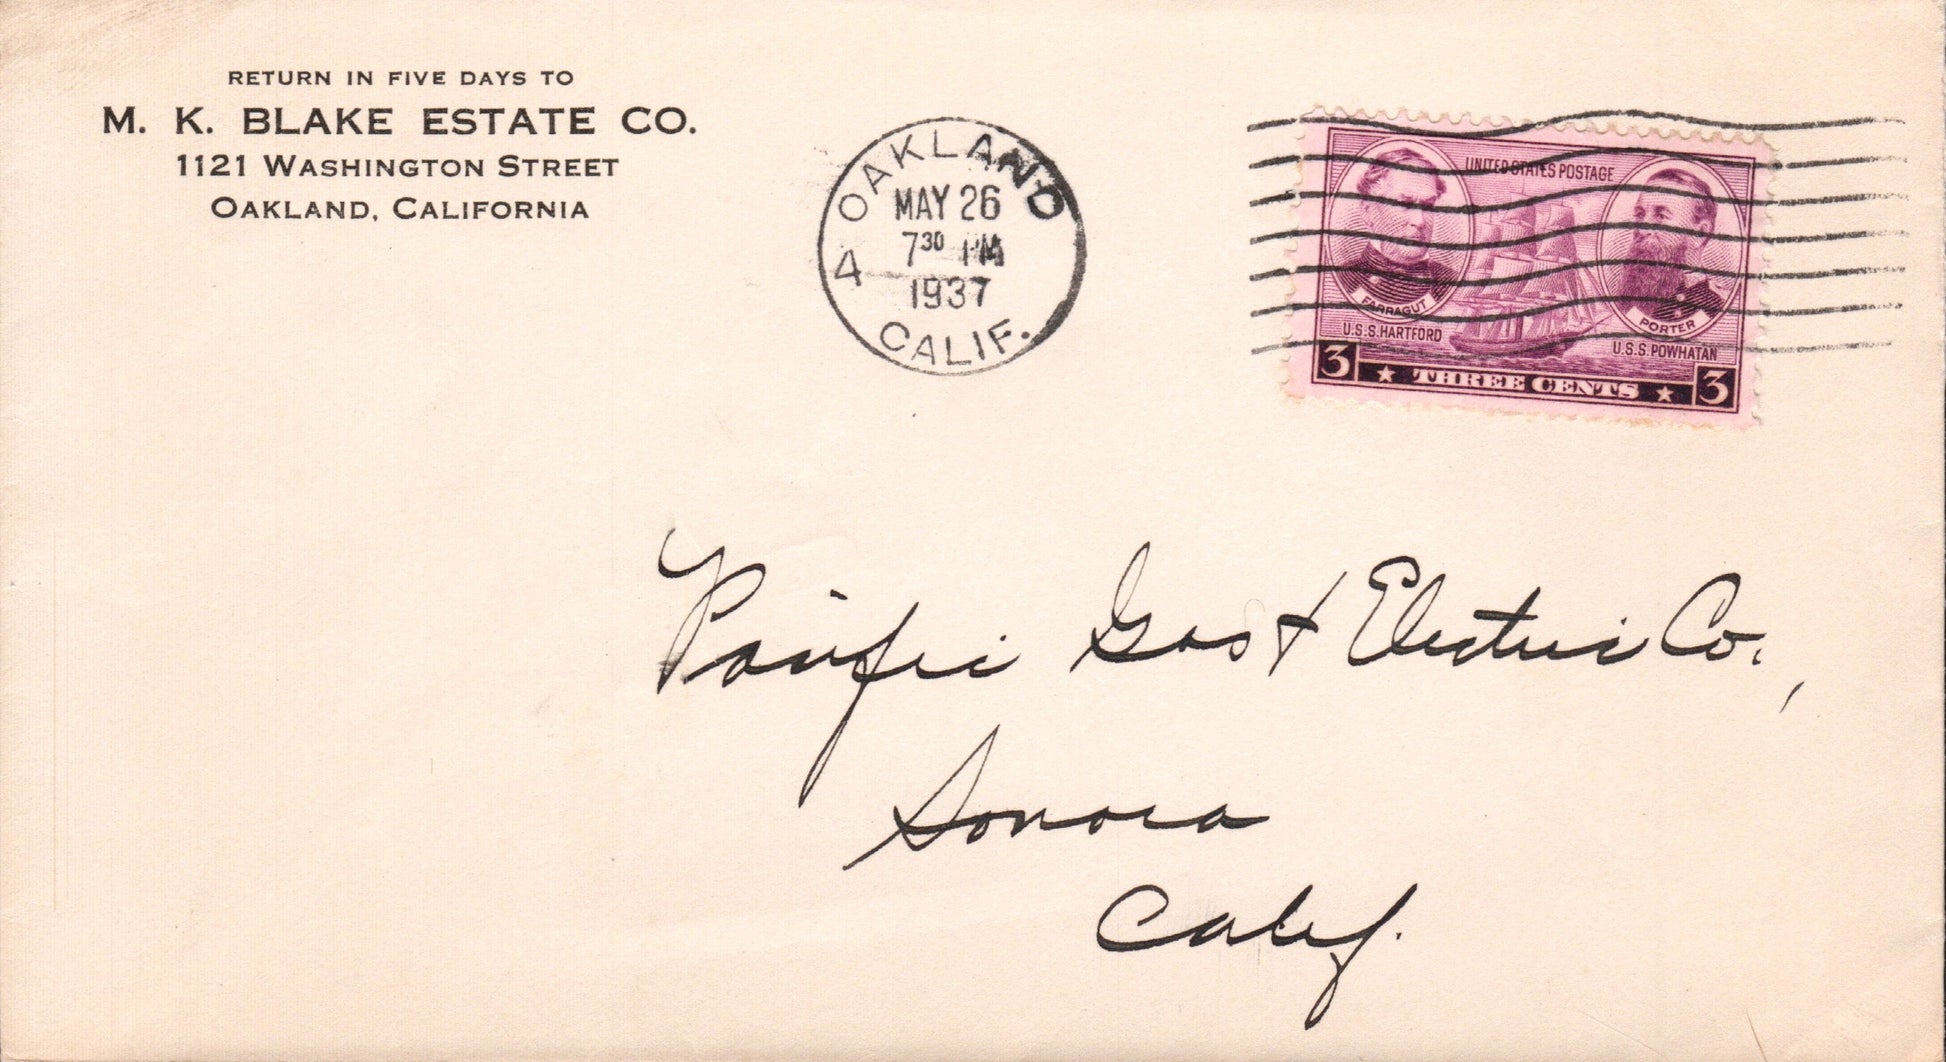 RETURN IN FIVE DAYS TO
M. K. BLAKE ESTATE CO.
1121 WASHINGTON STREET
OAKLAND, CALIFORNIA
OAKLAND
MAY 26
7 30 PM
1937
4
CALIF.
UNITED STATES POSTAGE
FARRAGUT
U.S.S. HARTFORD
PORTER
U.S.S. POWHATAN
3 ★ THREE CENTS ★ 3
Pacific Gas & Electric Co.,
Sonora
Calif.